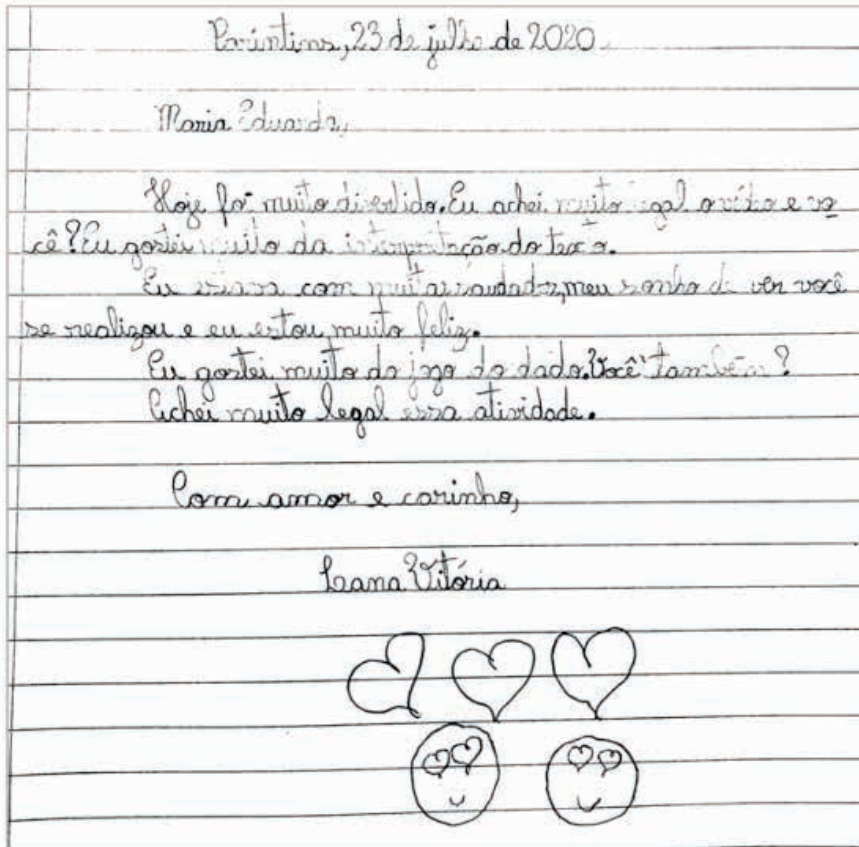 Parintins, 23 de julho de 2020
Maria Eduarda,
Hoje foi muito divertido. Eu achei muito legal o vídeo e vo
cê? Eu gostei muito da interpretação do texto.
Eu estava com muitas saudades, meu sonho de ver você
se realizou e eu estou muito feliz.
Eu gostei muito do jogo do dado. Você também?
Achei muito legal essa atividade.
Com amor e carinho,
Luana Vitória